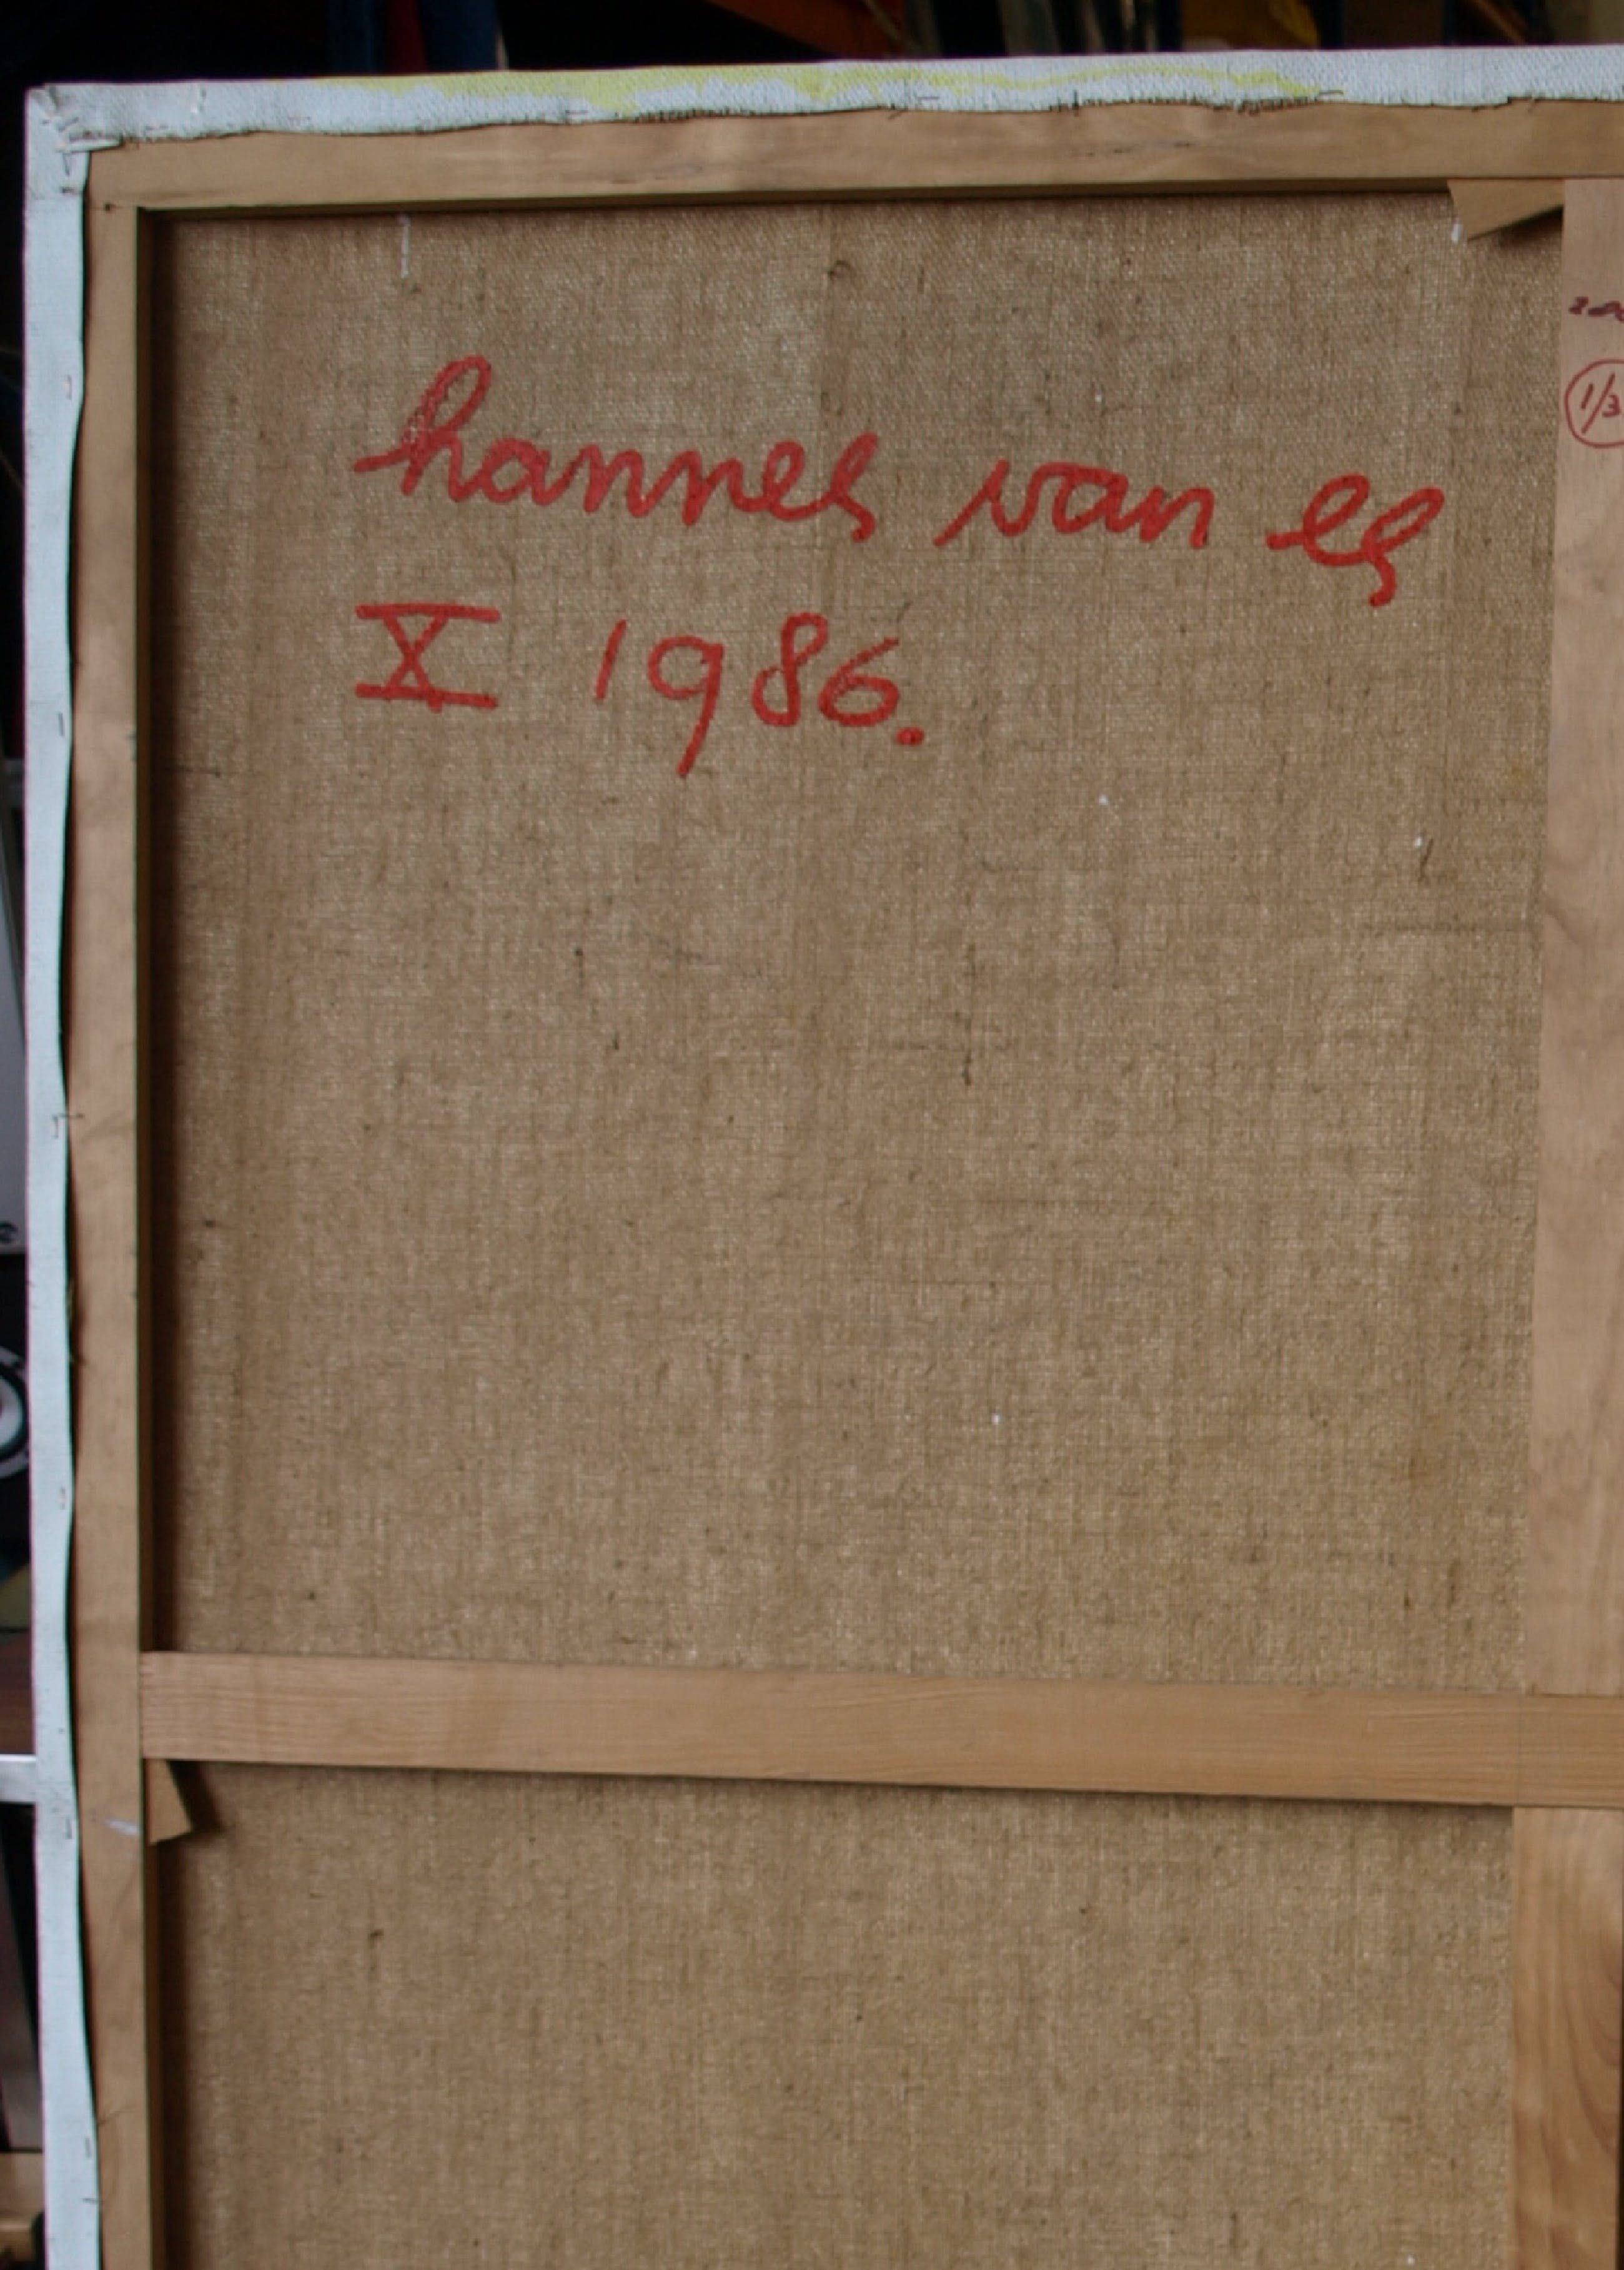 hannes van es
X 1986.
1/3